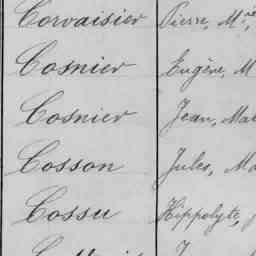 Corvaisier Pierre, M
Cosnier Eugène, M
Cosnier Jean, Ma
Cosson Jules, Ma
Cossu Hippolyte,